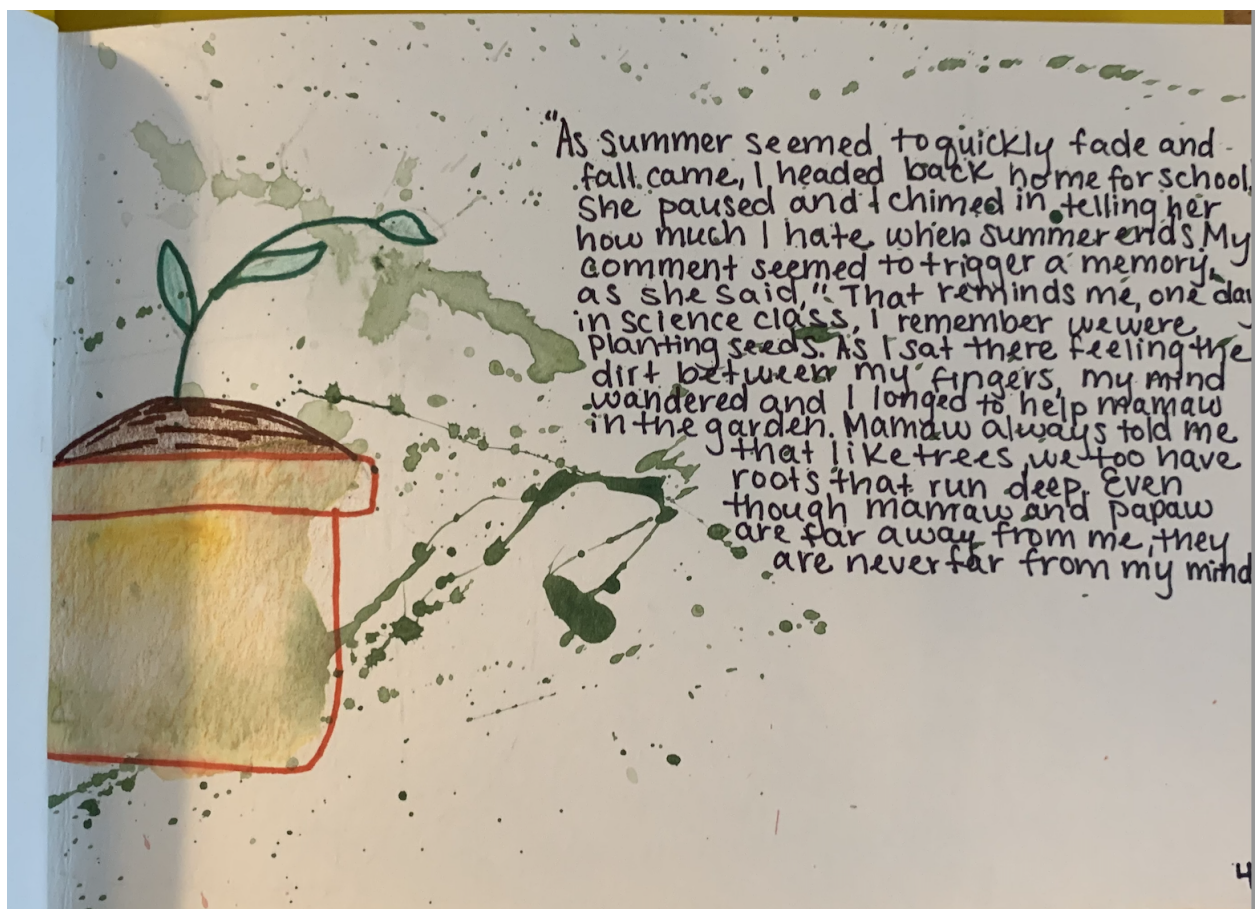 "As summer seemed to quickly fade and
fall came, I headed back home for school.
She paused and I chimed in, telling her
how much I hate when summer ends. My
comment seemed to trigger a memory,
as she said, "That reminds me, one day
in science class, I remember we were
planting seeds. As I sat there feeling the
dirt between my fingers, my mind
wandered and I longed to help mamaw
in the garden. Mamaw always told me
that like trees, we too have
roots that run deep. Even
though mamaw and papaw
are far away from me, they
are never far from my mind
4